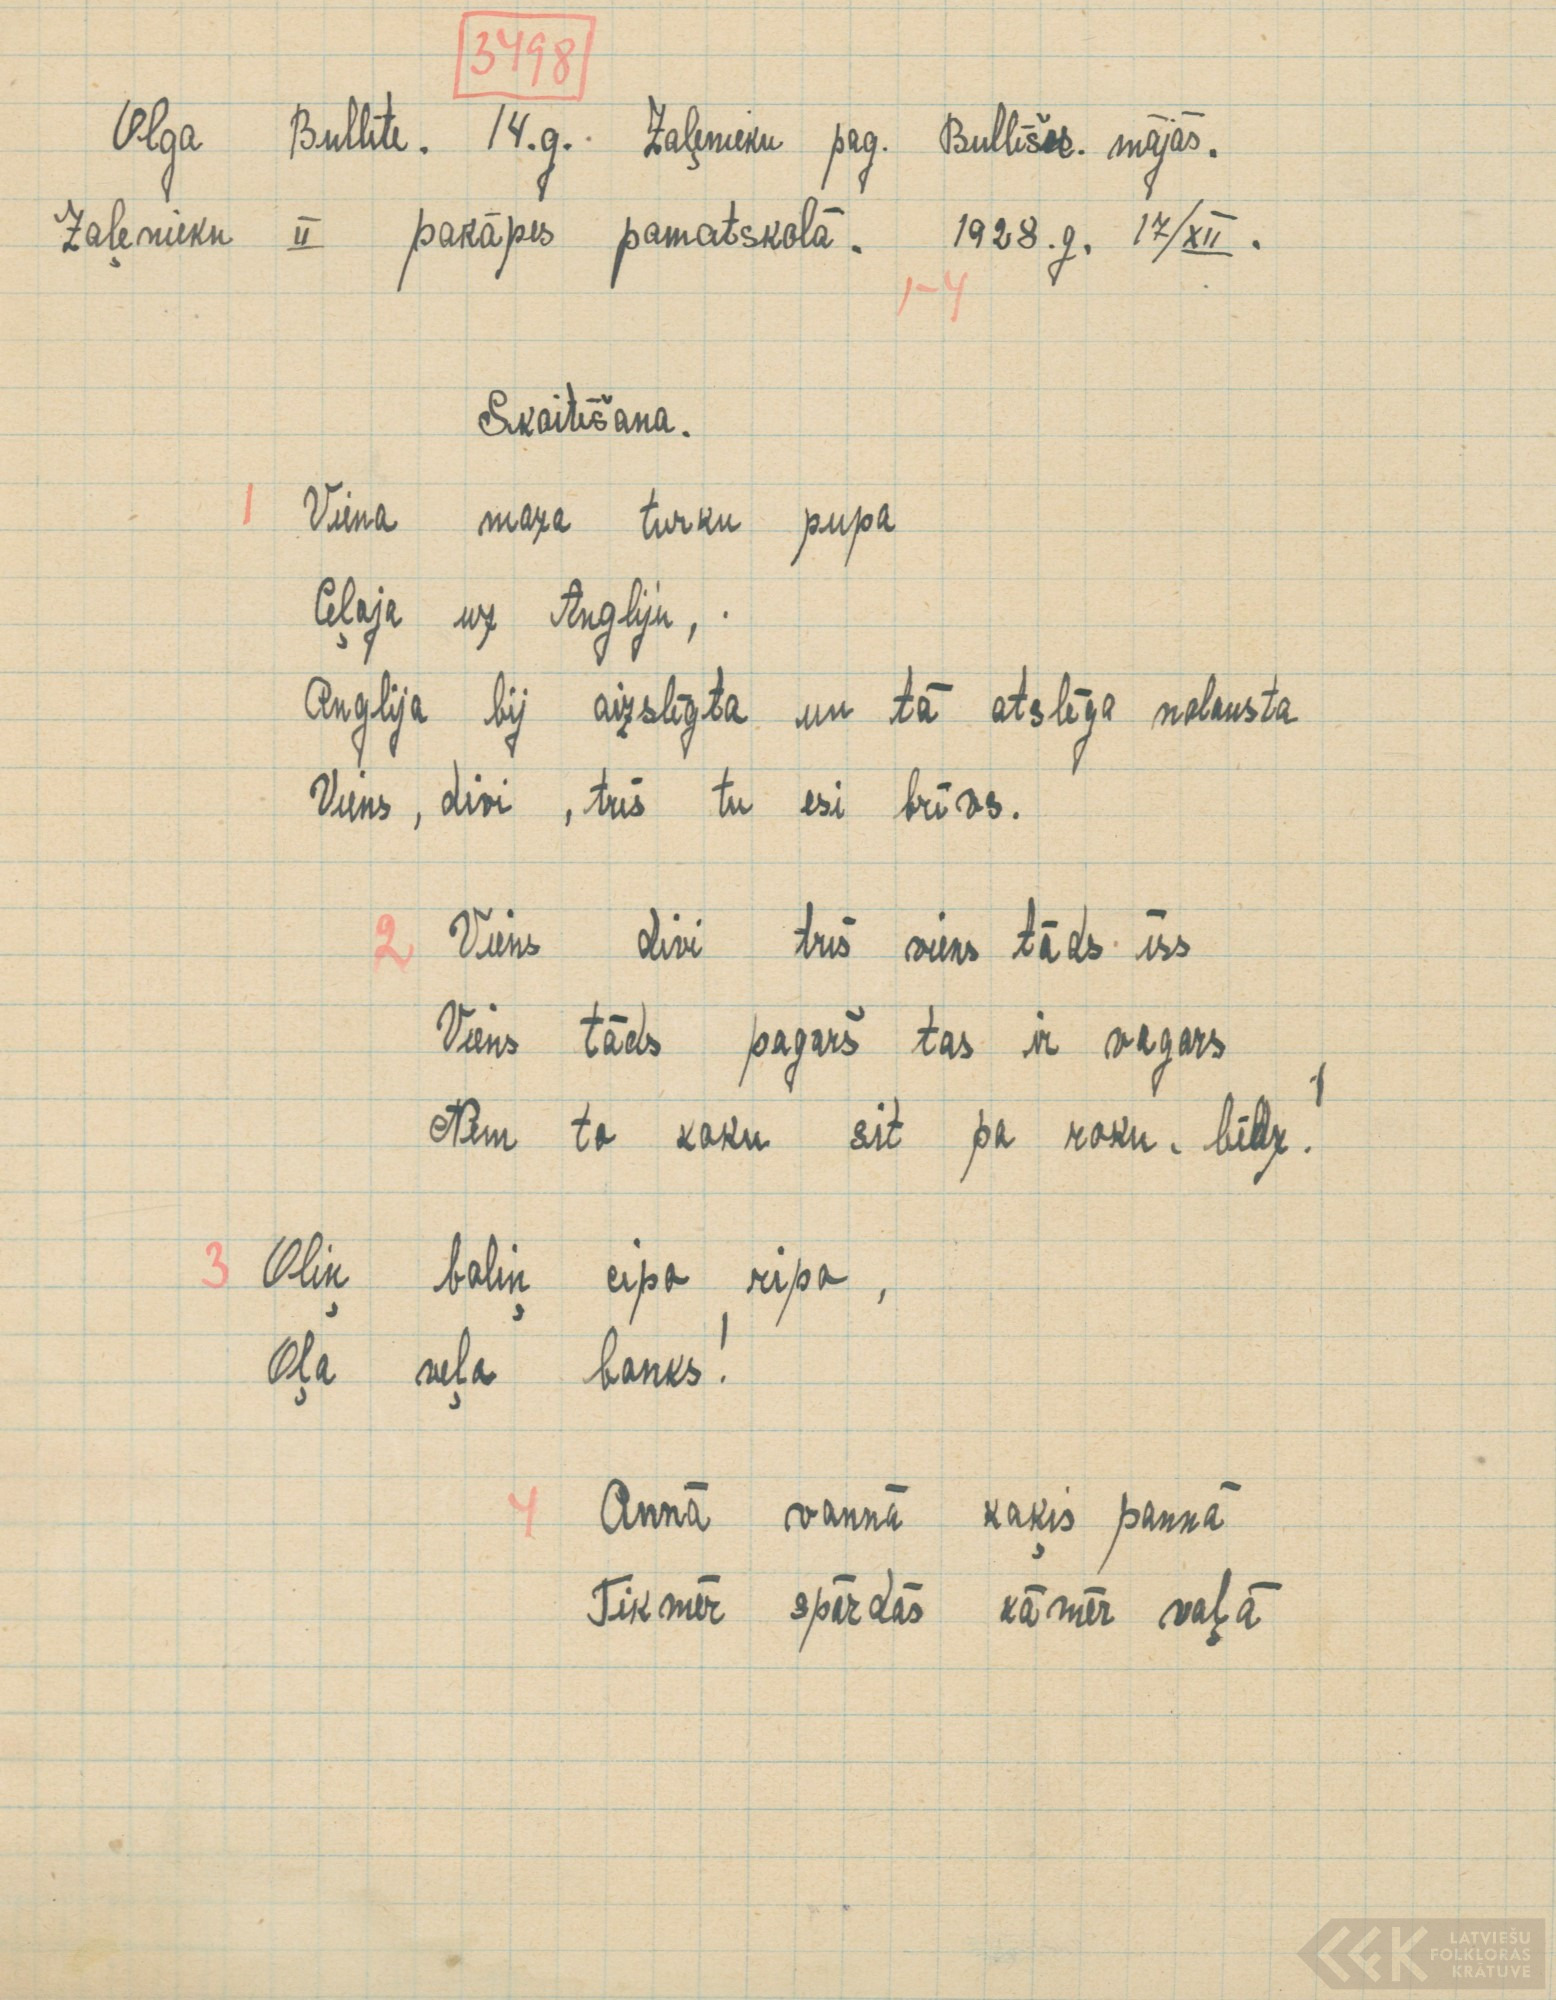 3498
Olga Bullīte. 14.g. Zaļenieku pag. Bullīšu. mājās.
Zaļenieku II pakāpes pamatskolā. 1928.g. 17/XII.
1-4
Skaitīšana.
1 Viena maza turku pupa
Ceļaja uz Angliju,
Anglija bij aizslēgta un tā atslēga nolausta
Viens, divi, trīs tu esi brīvs.
2 Viens divi trīs viens tāds īss
Viens tāds pagarš tas ir vagars
Ņem to koku sit pa roku. bīdz!
3 Oliņ boliņ cipa ripa,
Oļa veļa banks!
4 Annā vannā kaķis pannā
Tikmēr spārdās kāmēr vaļā
LATVIEŠU
FOLKLORAS
KRĀTUVE